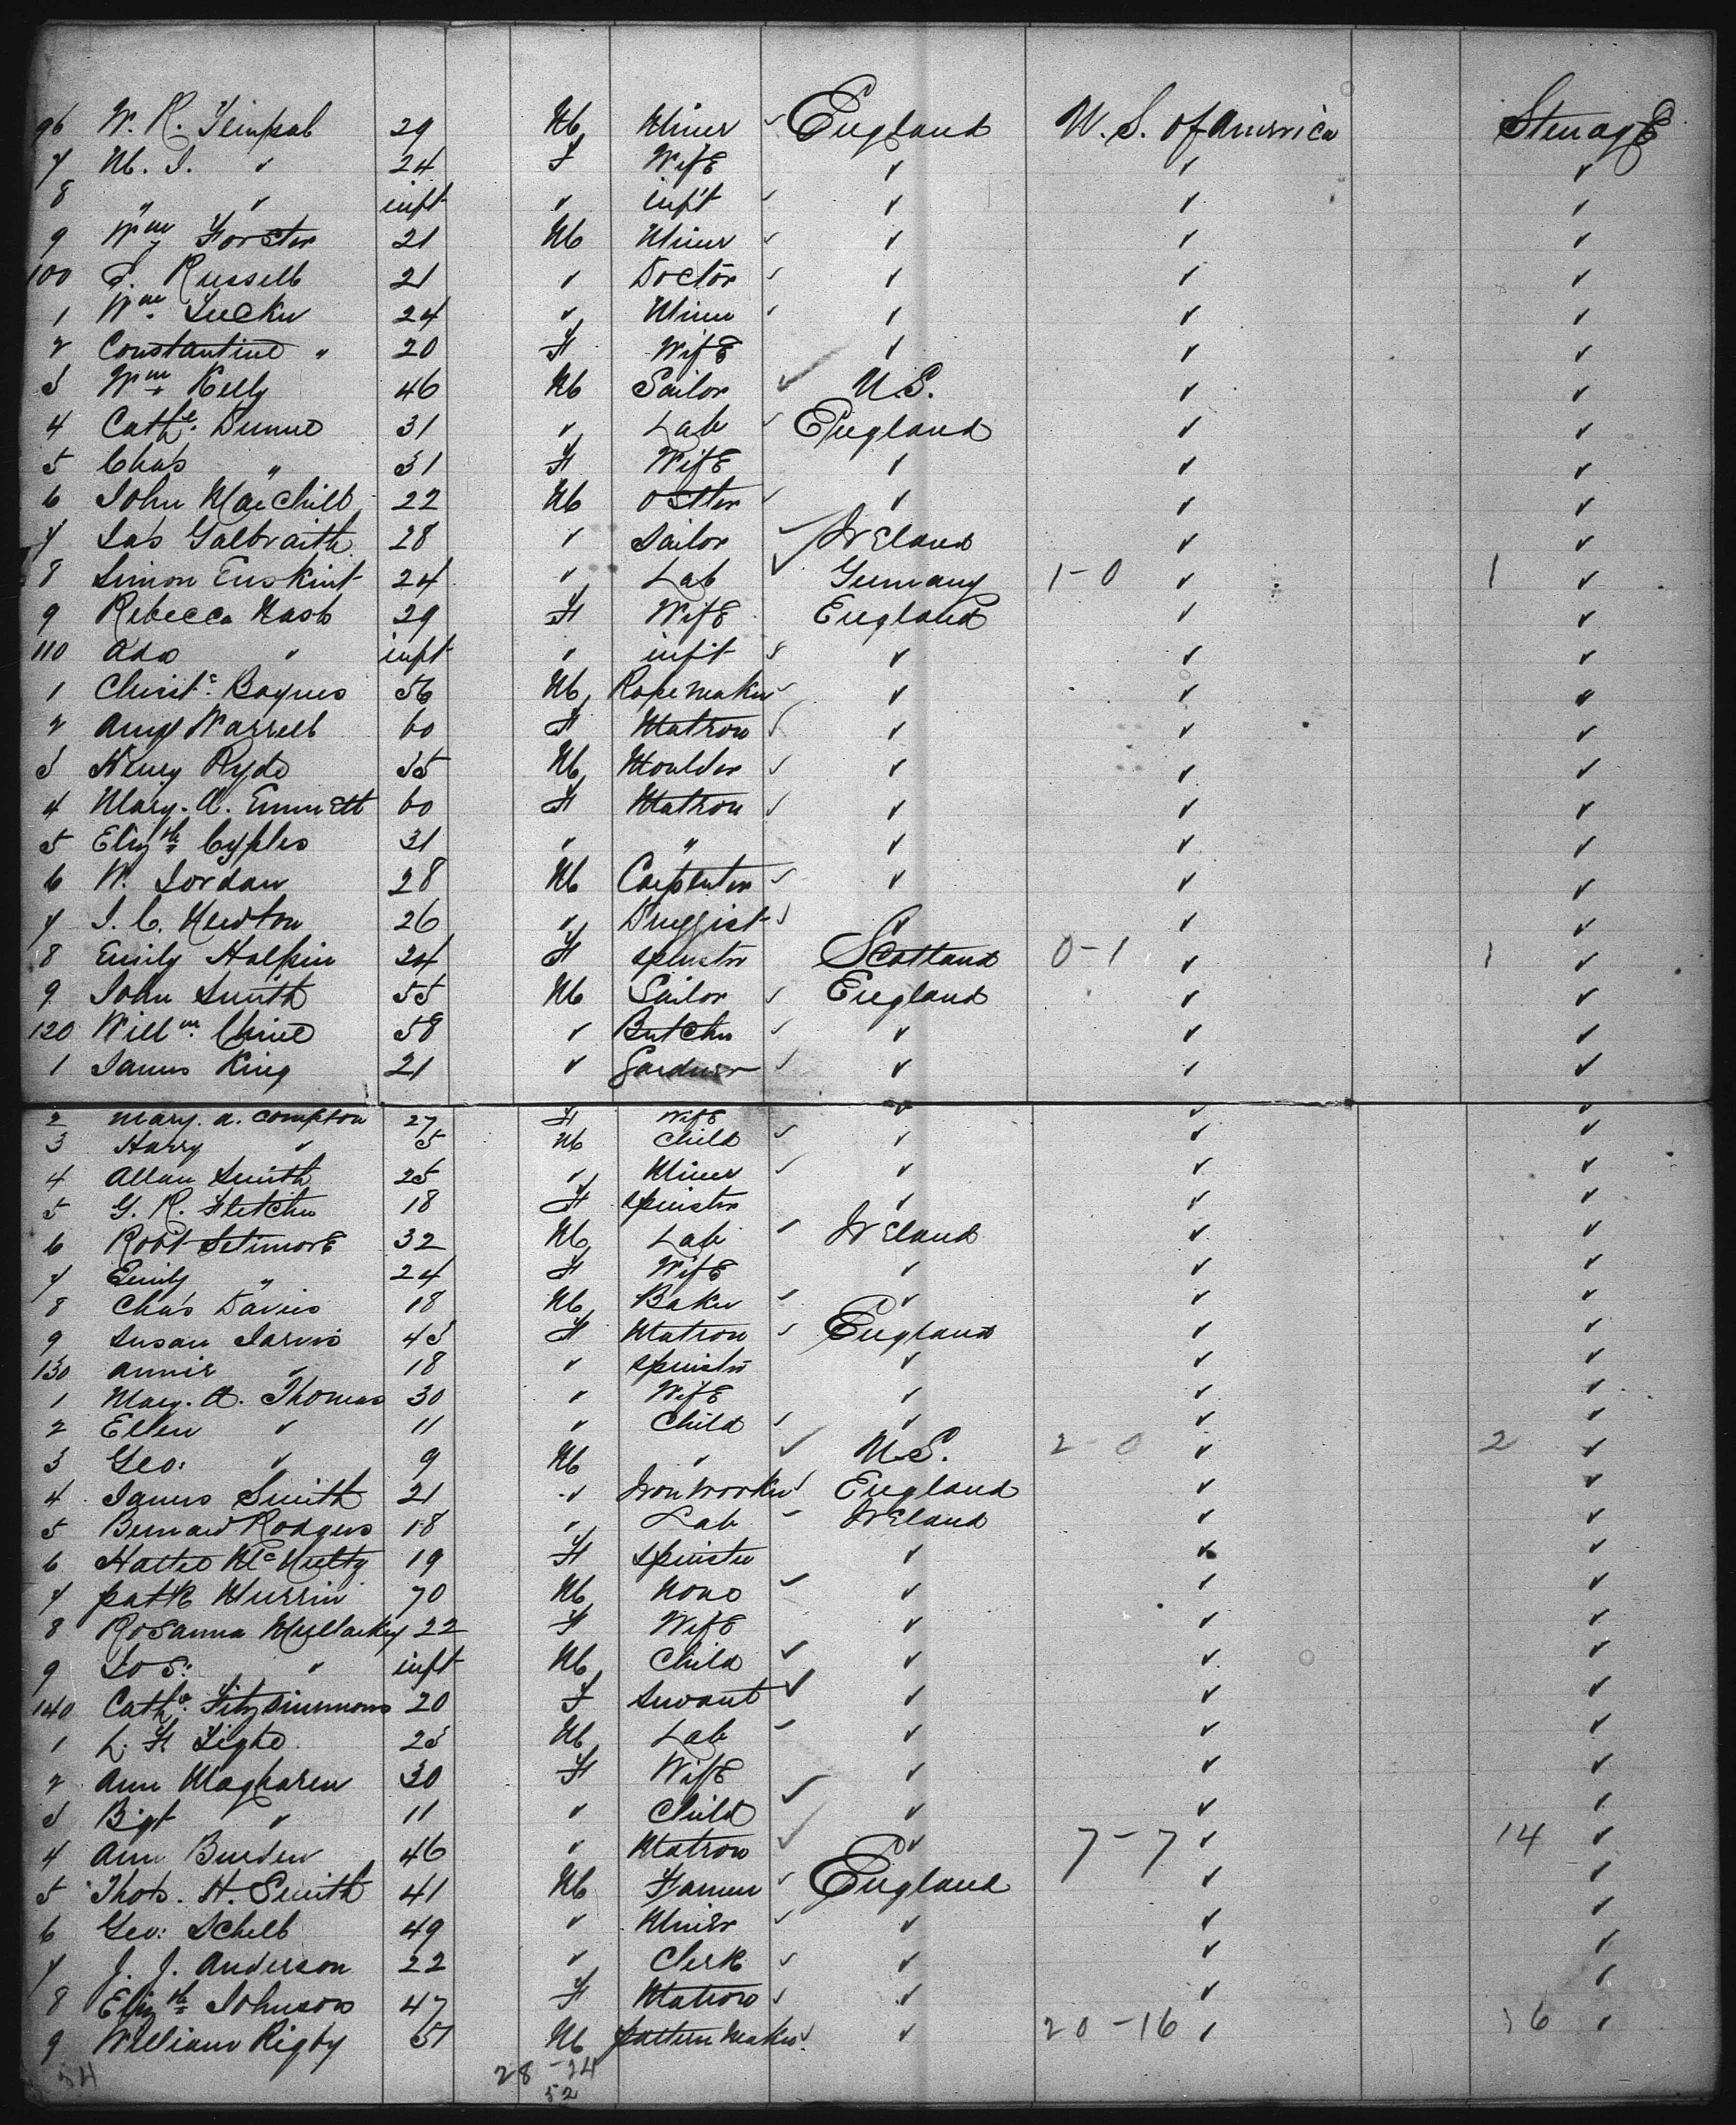 96 W. R. 29 M Miner England U. S. of America Steerage
7 M. J. " 24 F Wife " " "
8 " " inft " inf't " " "
9 Wm Forster 21 M Miner " " "
100 J. Russell 21 " Doctor " " "
1 Wm 24 " Miner " " "
2 Constantine " 20 F Wife " " "
3 Wm Kelly 46 M Sailor U.S. " "
4 Cathe. Dunne 31 " Lab England " "
5 Chas " 31 F Wife " " "
6 John 22 M Ostler " " "
7 Jas Galbraith 28 " Sailor Ireland " "
8 Simon 24 " Lab Germany 1-0 " 1 "
9 Rebecca Nash 29 F Wife England " "
110 Ada " inft " inf't " " "
1 56 M Rope maker " " "
2 Amy Warrell 60 F Matron " " "
3 Henry Ryde 35 M Moulder " " "
4 Mary. A. Emmett 60 F Matron " " "
5 Elizth Cyples 31 " " " " "
6 W. Jordan 28 M Carpenter " " "
7 J. C. Newton 26 " Druggist " " "
8 Emily Halpin 24 F Spinster Scotland 0-1 " 1 "
9 John Smith 55 M Sailor England " "
120 Willm 58 " Butcher " " "
1 James King 21 " Gardner " " "
2 Mary. A. Compton 27 F Wife " " "
3 Harry " 5 M Child " " "
4 Allan Smith 25 " Miner " " "
5 G. R. Fletcher 18 F Spinster " " "
6 Robt 32 M Lab Ireland " "
7 Emily " 24 F Wife " " "
8 Chas Davies 18 M Baker " " "
9 Susan Jarvis 43 F Matron England " "
130 Annie " 18 " Spinstr " " "
1 Mary. A. Thomas 30 " Wife " " "
2 Ellen " 11 " Child " " "
3 Geo: " 9 M " U.S. 2-0 " 2 "
4 James Smith 21 " Iron worker England " "
5 Bernard Rodgers 18 " Lab Ireland " "
6 McNulty 19 F Spinster " " "
7 Patk Murrin 70 M None " " "
8 Rosanna Mullarkey 22 F Wife " " "
9 Jos: " inft M Child " " "
140 Cathe. Fitzsimmons 20 F Servant " " "
1 L. F. Tighe 23 M Lab " " "
2 Ann Magharen 30 F Wife " " "
3 Bigt " 11 " Child " " "
4 Ann Burden 46 " Matron " 7-7 " 14 "
5 Thos. H. Smith 41 M Farmer England " "
6 Geo: Schell 49 " Miner " " "
7 J. J. Anderson 22 " Clerk " " "
8 Elizth Johnson 47 F Matron " " "
9 William Rigby 51 M Pattern Maker " 20-16 " 36 "
54 28-24
52